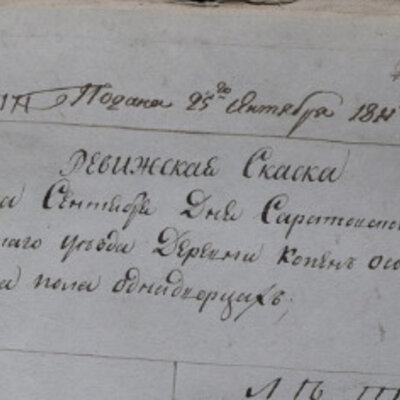 Подана 25го Сентября 181
Ревижская Скаска
Сентября Дня Саратовско
наго уезда Деревни Копенъ осо
на пола однадворцахъ;
Л П